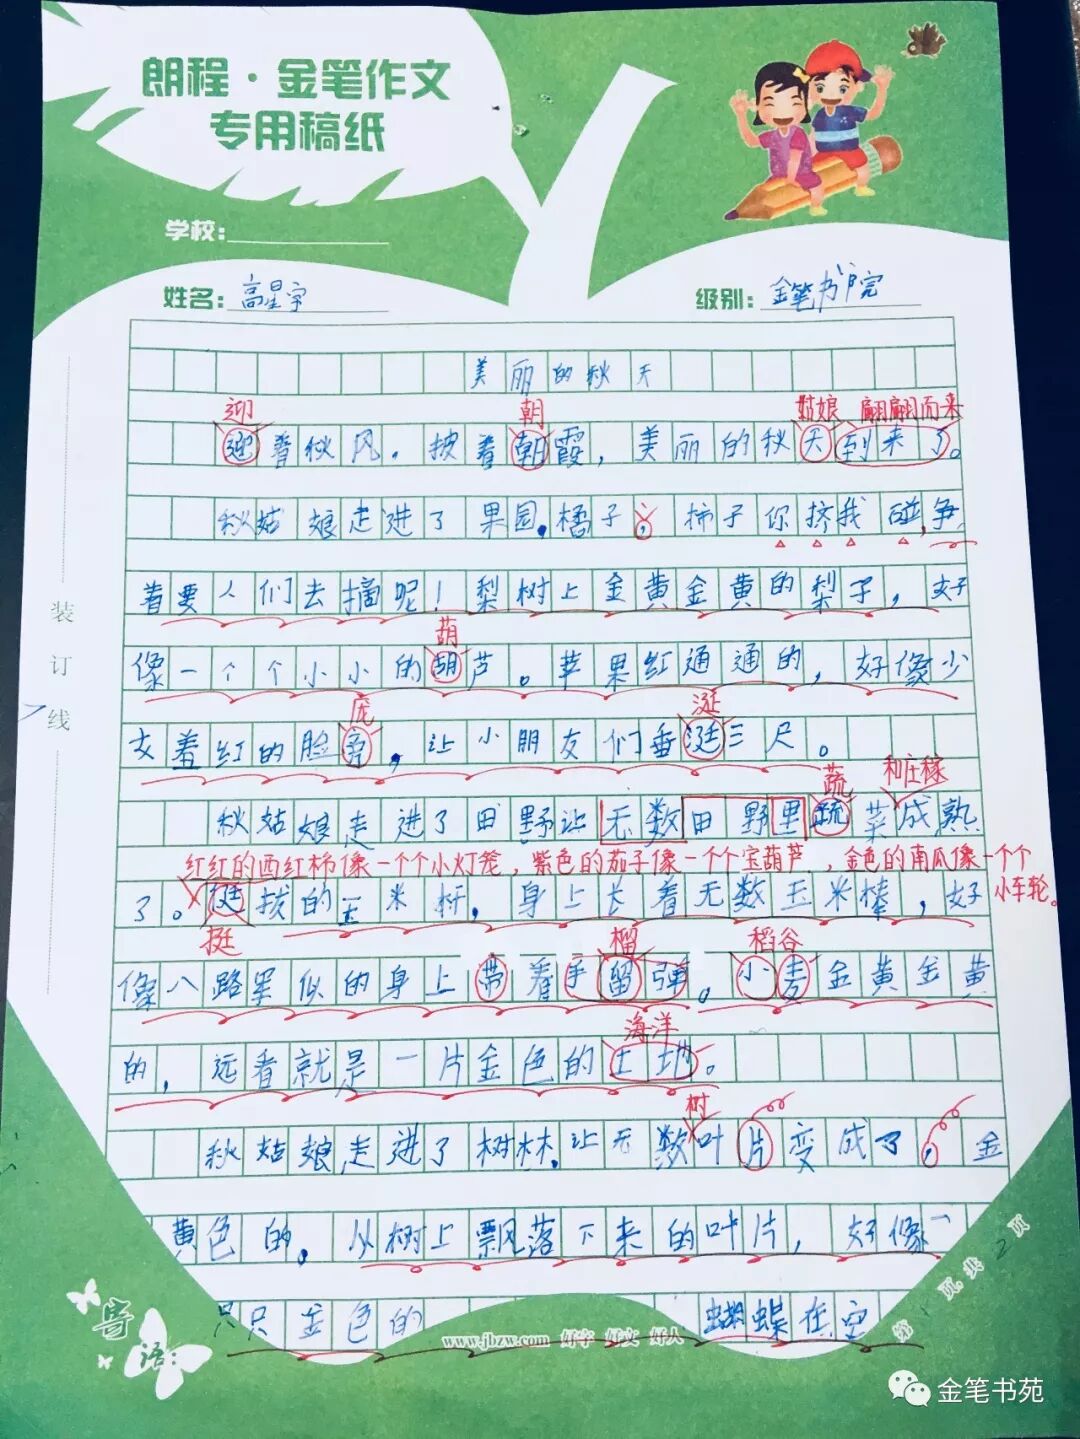 朗程·金笔作文
专用稿纸
学校:
姓名: 高星宇
级别: 金笔书院
美丽的秋天
迎 朝 姑娘 翩翩而来
迎着秋风。披着朝霞,美丽的秋天到来了。
秋姑娘走进了果园。橘子,柿子你挤我碰,争
着要人们去摘呢!梨树上金黄金黄的梨子,好
葫
像一个个小小的胡芦。苹果红通通的,好像少
庞 涎
女羞红的脸,让小朋友们垂涎三尺。
蔬 和庄稼
秋姑娘走进了田野让无数田野里蔬菜成熟
红红的西红柿像一个个小灯笼,紫色的茄子像一个个宝葫芦,金色的南瓜像一个个
小车轮。
了。挺拔的玉米杆,身上长着无数玉米棒,好
挺 榴 稻谷
像八路军似的身上带着手留弹。小麦金黄金黄
海洋
的,远看就是一片金色的土地。
树
秋姑娘走进了树林,让无数叶片变成了,金
黄色的。从树上飘落下来的叶片,好像一
只只金色的 蝴蝶在空
装
订
线
寄语:
www.jbzw.com 好字 好文 好人
第 页,共2页
金笔书苑